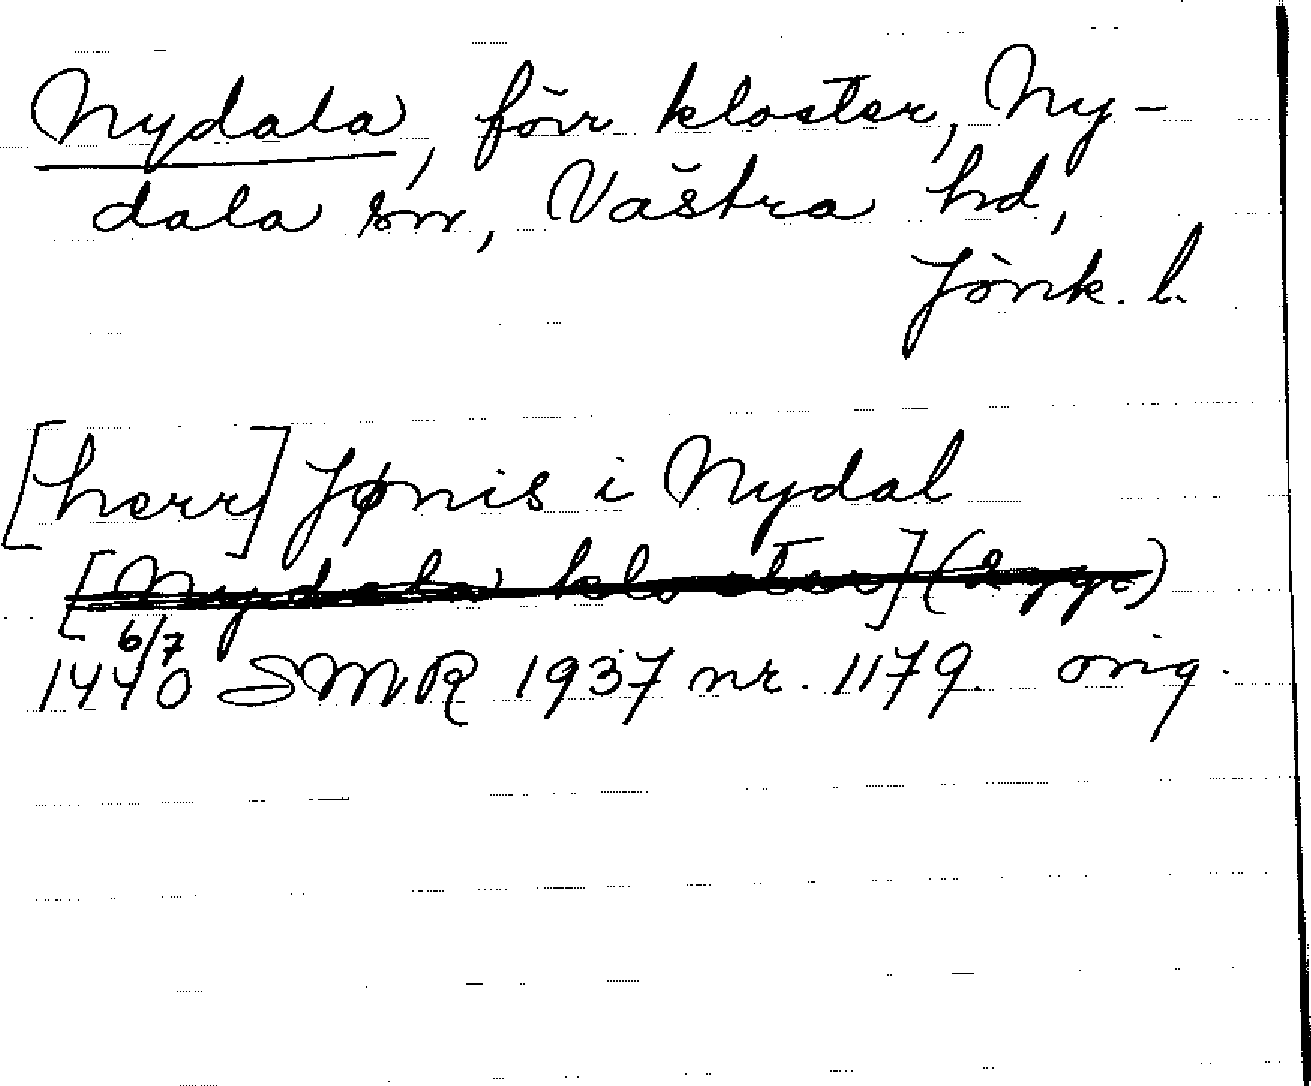 Nydala, förr kloster, Ny-
dala sn, Västra hd,
Jönk. l.
[herr] Jønis i Nydal
[Nydala kloster]
6/7
1440 SMR 1937 nr. 1179. orig.